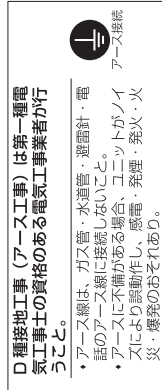 D 種接地工事（アース工事）は第一種電
気工事士の資格のある電気工事業者が行
うこと。
• アース線は、ガス管・水道管・避雷針・電
話のアース線に接続しないこと。
• アースに不備がある場合、ユニットがノイ
ズにより誤動作し、感電・発煙・発火・火
災・爆発のおそれあり。
アース接続